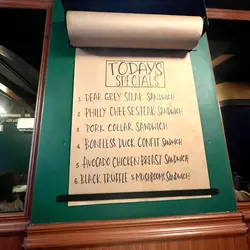 TODAY'S
SPECIALS
1. DEAR GREY STEAK SANDWICH
2. PHILLY CHEESESTEAK SANDWICH
3. PORK COLLAR SANDWICH
4. BONELESS DUCK CONFIT SANDWICH
5. AVOCADO CHICKEN BREAST SANDWICH
6. BLACK TRUFFLE & MUSHROOMS SANDWICH